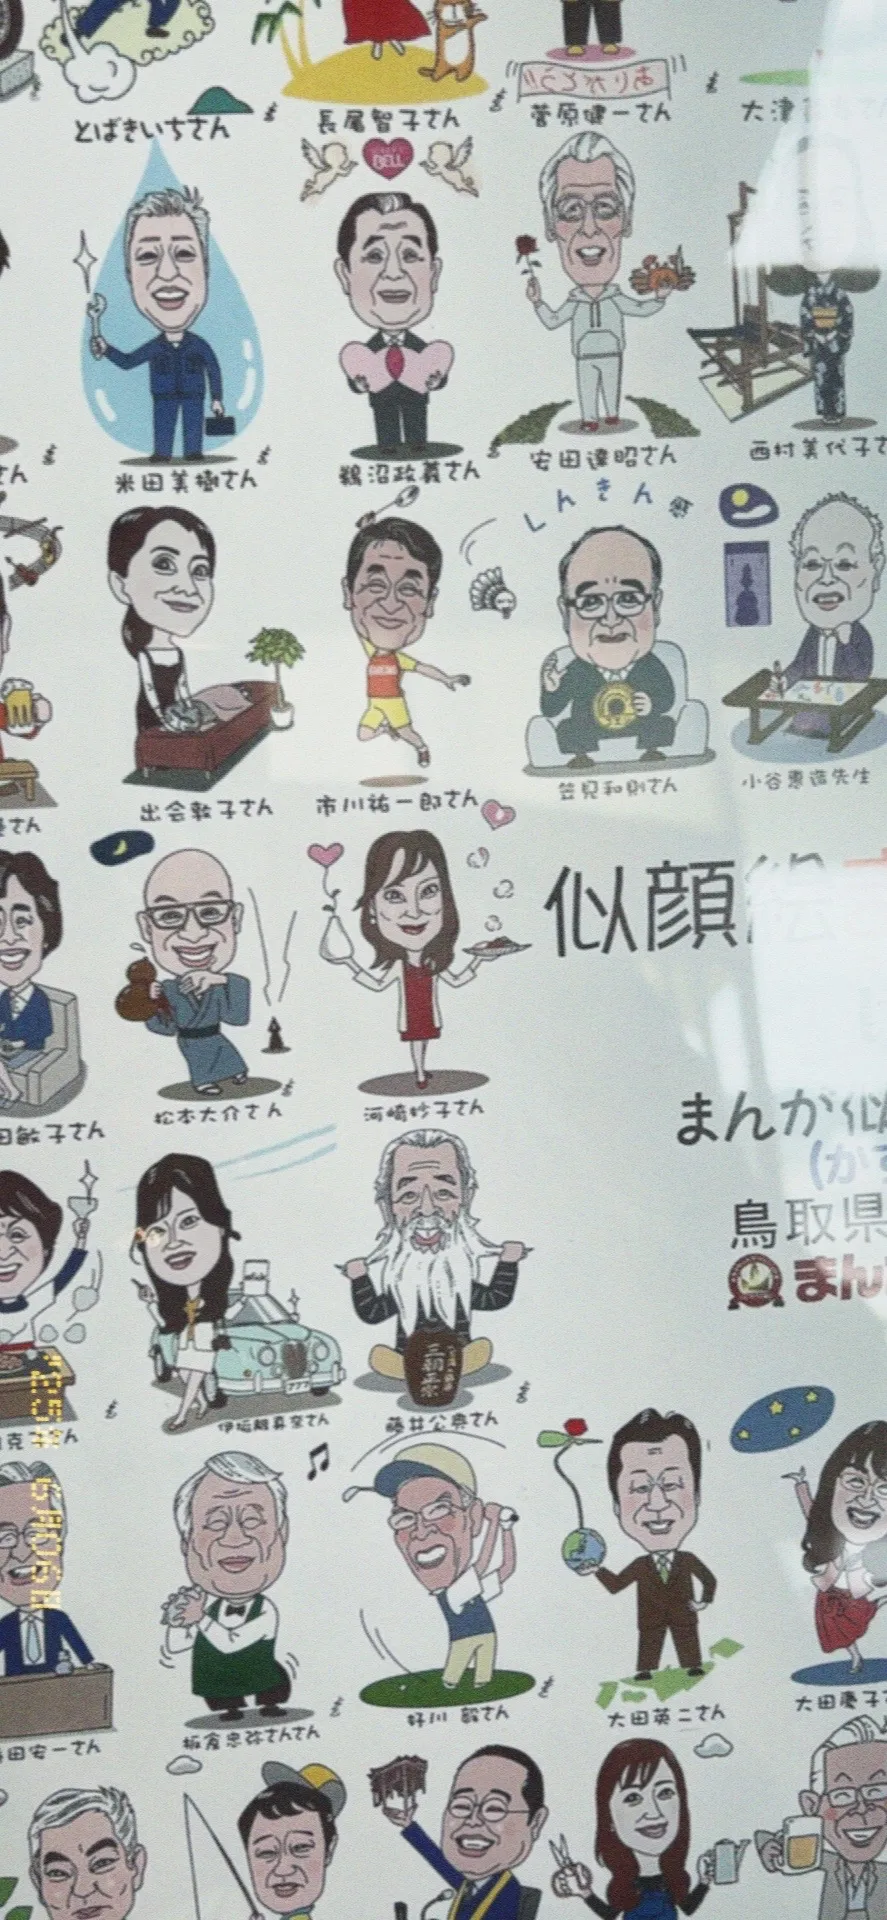 ありがとう
とばきいちさん
長尾智子さん
菅原健一さん
大津
BELL
さん
米田美樹さん
鵜沼政義さん
安田達昭さん
西村美代子さ
しんきん
出会敦子さん
市川祐一郎さん
笠見和則さん
小谷惠造先生
さん
似顔絵
田敏子さん
松本大介さん
河崎妙子さん
まんが似
(かす
鳥取県
まん
三朝正宗
777
克子さん
藤井公典さん
田安一さん
板倉忠弥さんさん
好川 毅さん
大田英二さん
大田慶子さ